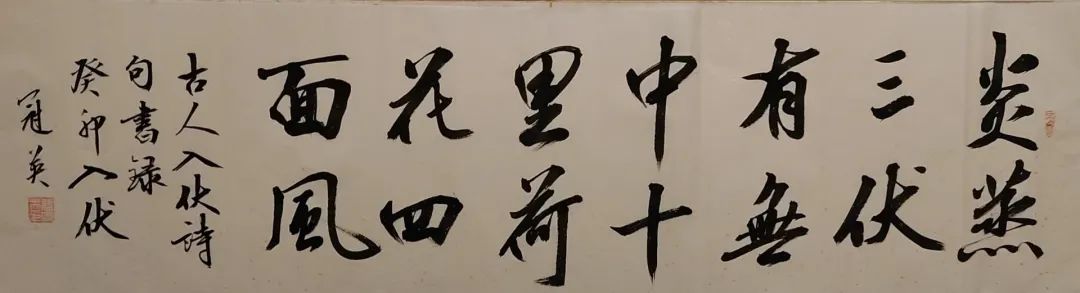 炎蒸
三伏
有無
中十
里荷
花四
面風
古人入伏詩
句書録
癸卯入伏
冠英